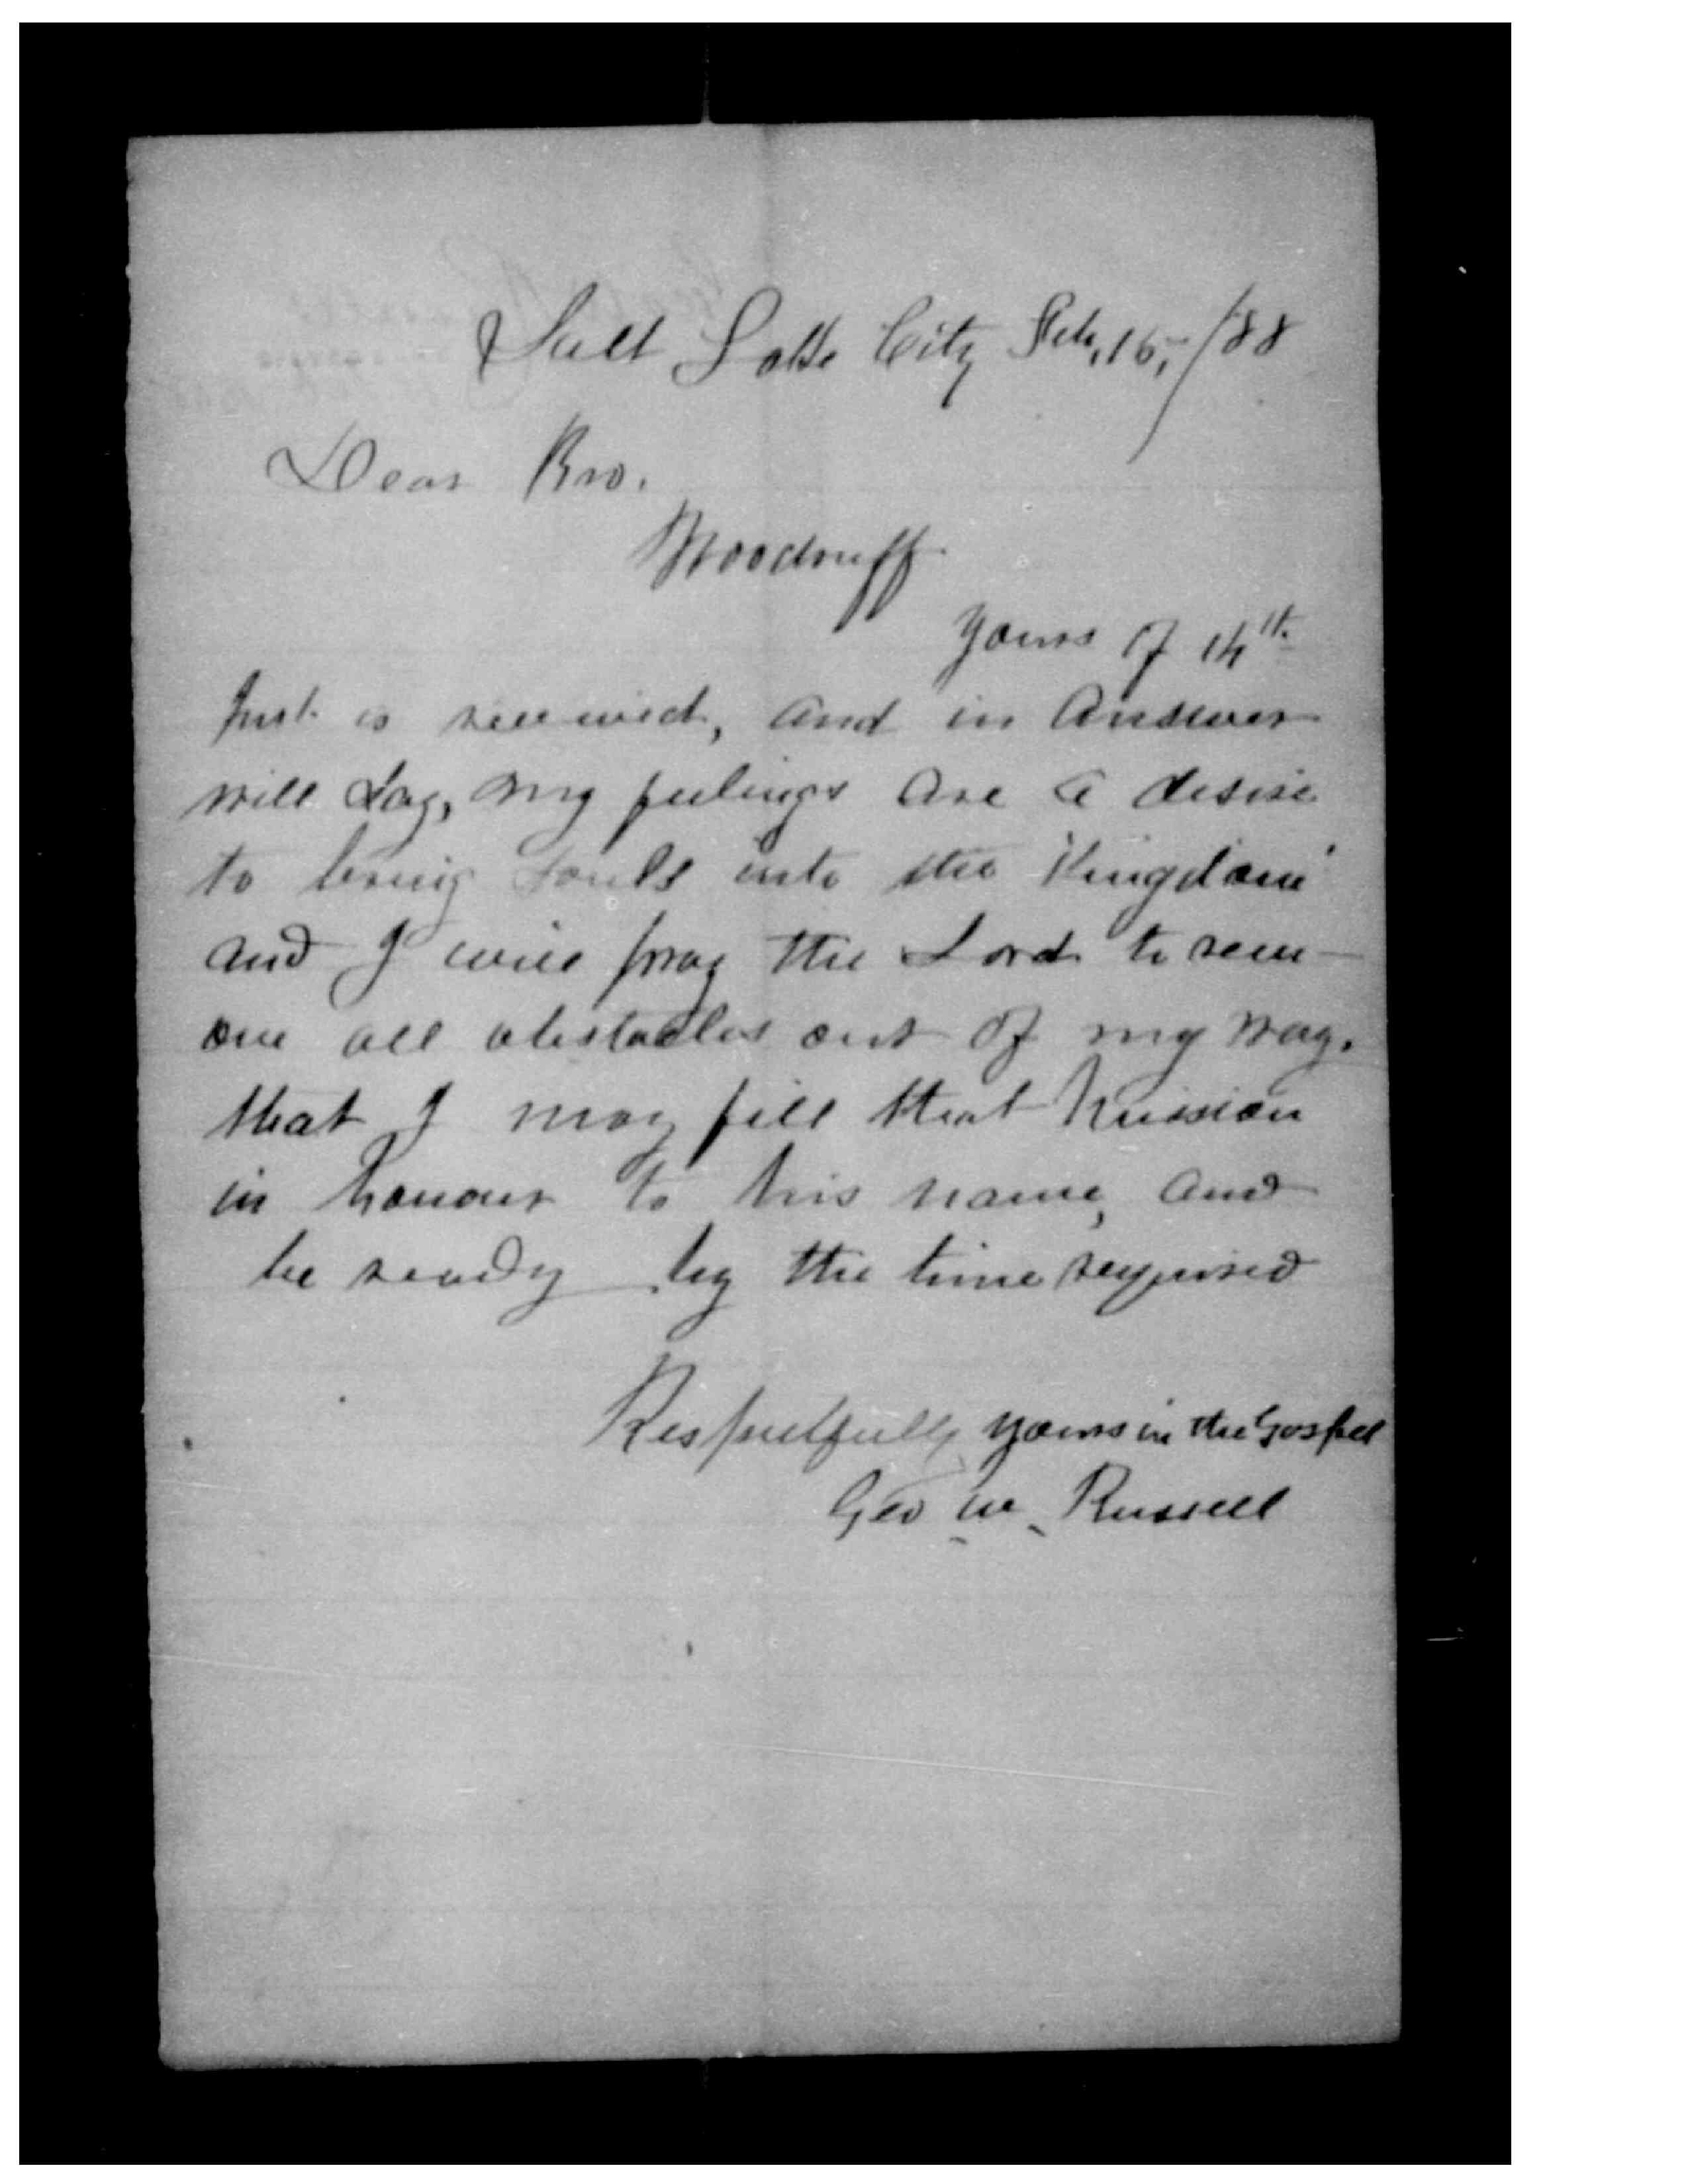 Salt Lake City Feb, 16, /88
Dear Bro.
Woodruff
Yours of 14th
Inst. is received, and in Answer
will Say, my feelings are a desire
to bring Souls into the Kingdom
and I will pray the Lord to rem-
ove all obstacles out of my way.
that I may fill that Mission
in honour to his name, and
be ready by the time required
Respectfully yours in the Gospel
Geo W. Russell